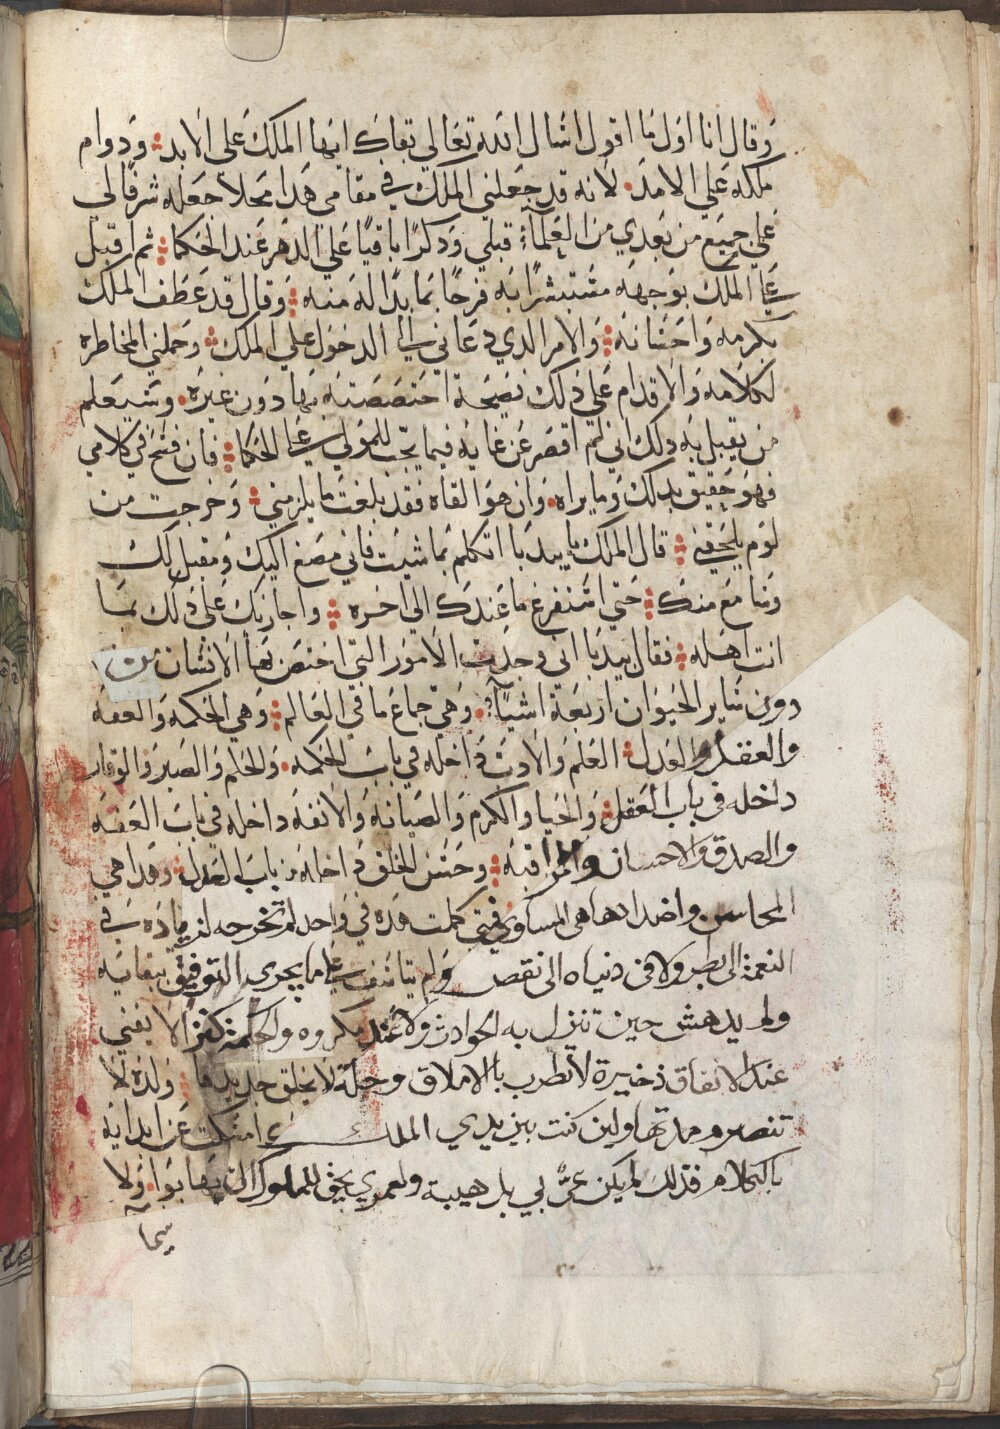 وقال انا اول ما اقول اسال الله تعالي بقاك ايها الملك علي الابد ودوام
ملكه علي الامد لانه قد جعلني الملك في مقامي هدا محلا جعله شرفا لي
علي جميع من بعدي من العلمآء قبلي ودكرا باقيا علي الدهر عند الحكما ثم اقبل
علي الملك بوجهه مستبشرا به فرحا بما بدا له منه وقال قد عطف الملك
بكرمه واحسانه والامر الدي دعاني الي الدخول علي الملك وحملني المخاطره
لكلامه والاقدام علي دلك نصيحة اختصصته بها دون غيره وسيعلم
من يقبل به دلك اني لم اقصر عن غايه فيما يجب للمولي علي الحكما فان فسح في كلامي
فهو حقيق بدلك وما يراه وان هو القاه فقد بلغت ما يلزمني وخرجت من
لوم يلحقني قال الملك يا بيدبا اتكلم بما شيت فاني مصغ اليك ومقبل لك
وسامع منك حتي استفرغ ما عندك الي اخره واجازيك علي دلك بما
انت اهله فقال بيدبا اني وجدت الامور التي اختص بها الانسان من
دون ساير الحيوان اربعة اشيآء وهي جماع ما في العالم وهي الحكمه والعفه
والعقل والعدل العلم والادب داخله في باب الحكمه والحلم والصبر والوقار
داخله في باب العقل والحيا والكرم والصيانه والانفه داخله في باب العفه
والصدق والاحسان والمراقبه وحسن الخلق داخله من باب العدل وهدا هي
المحاسن واضدادها هي المساوي فمتي كملت هده في واحد لم تخرجه لزياده في
النعمة الى بطر ولا في دنياه الى نقص ولم يتاسف علي ما يجري التوفيق ببقايه
ولم يدهش حين تنزل به الحوادث ولا عند مكروه والحكمة كنز لا يفني
عند الانفاق ذخيرة لا تطرب بالاملاق وحلة لا تخلق جديدها ولدة لا
تنصرم مدتها ولين كنت بين يدي الملك امسكت عن ابدايه
بالكلام فذلك لم يكن عيّ بي بل هيبة ولعمري يحق للملوك ان يهابوا ولا
سيمآ